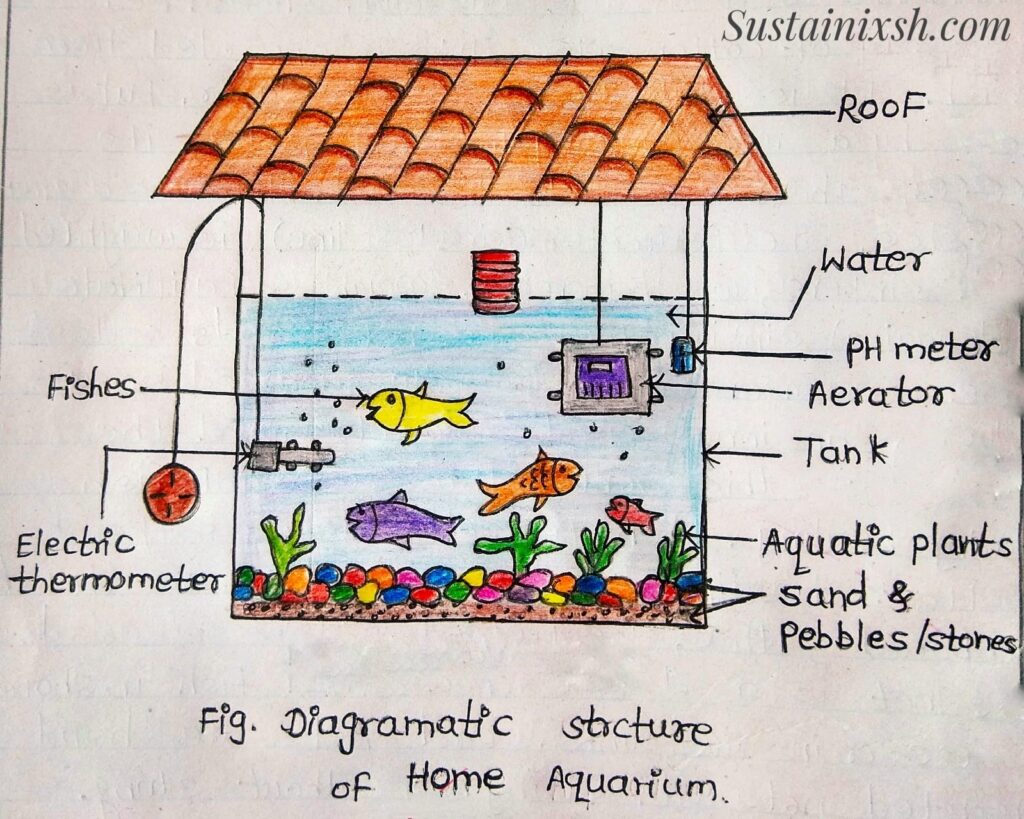 Sustainixsh.com
ROOF
Water
PH meter
Aerator
Fishes
Tank
Electric
thermometer
Aquatic plants
Sand &
Pebbles/stones
Fig. Diagramatic strcture
of Home Aquarium.